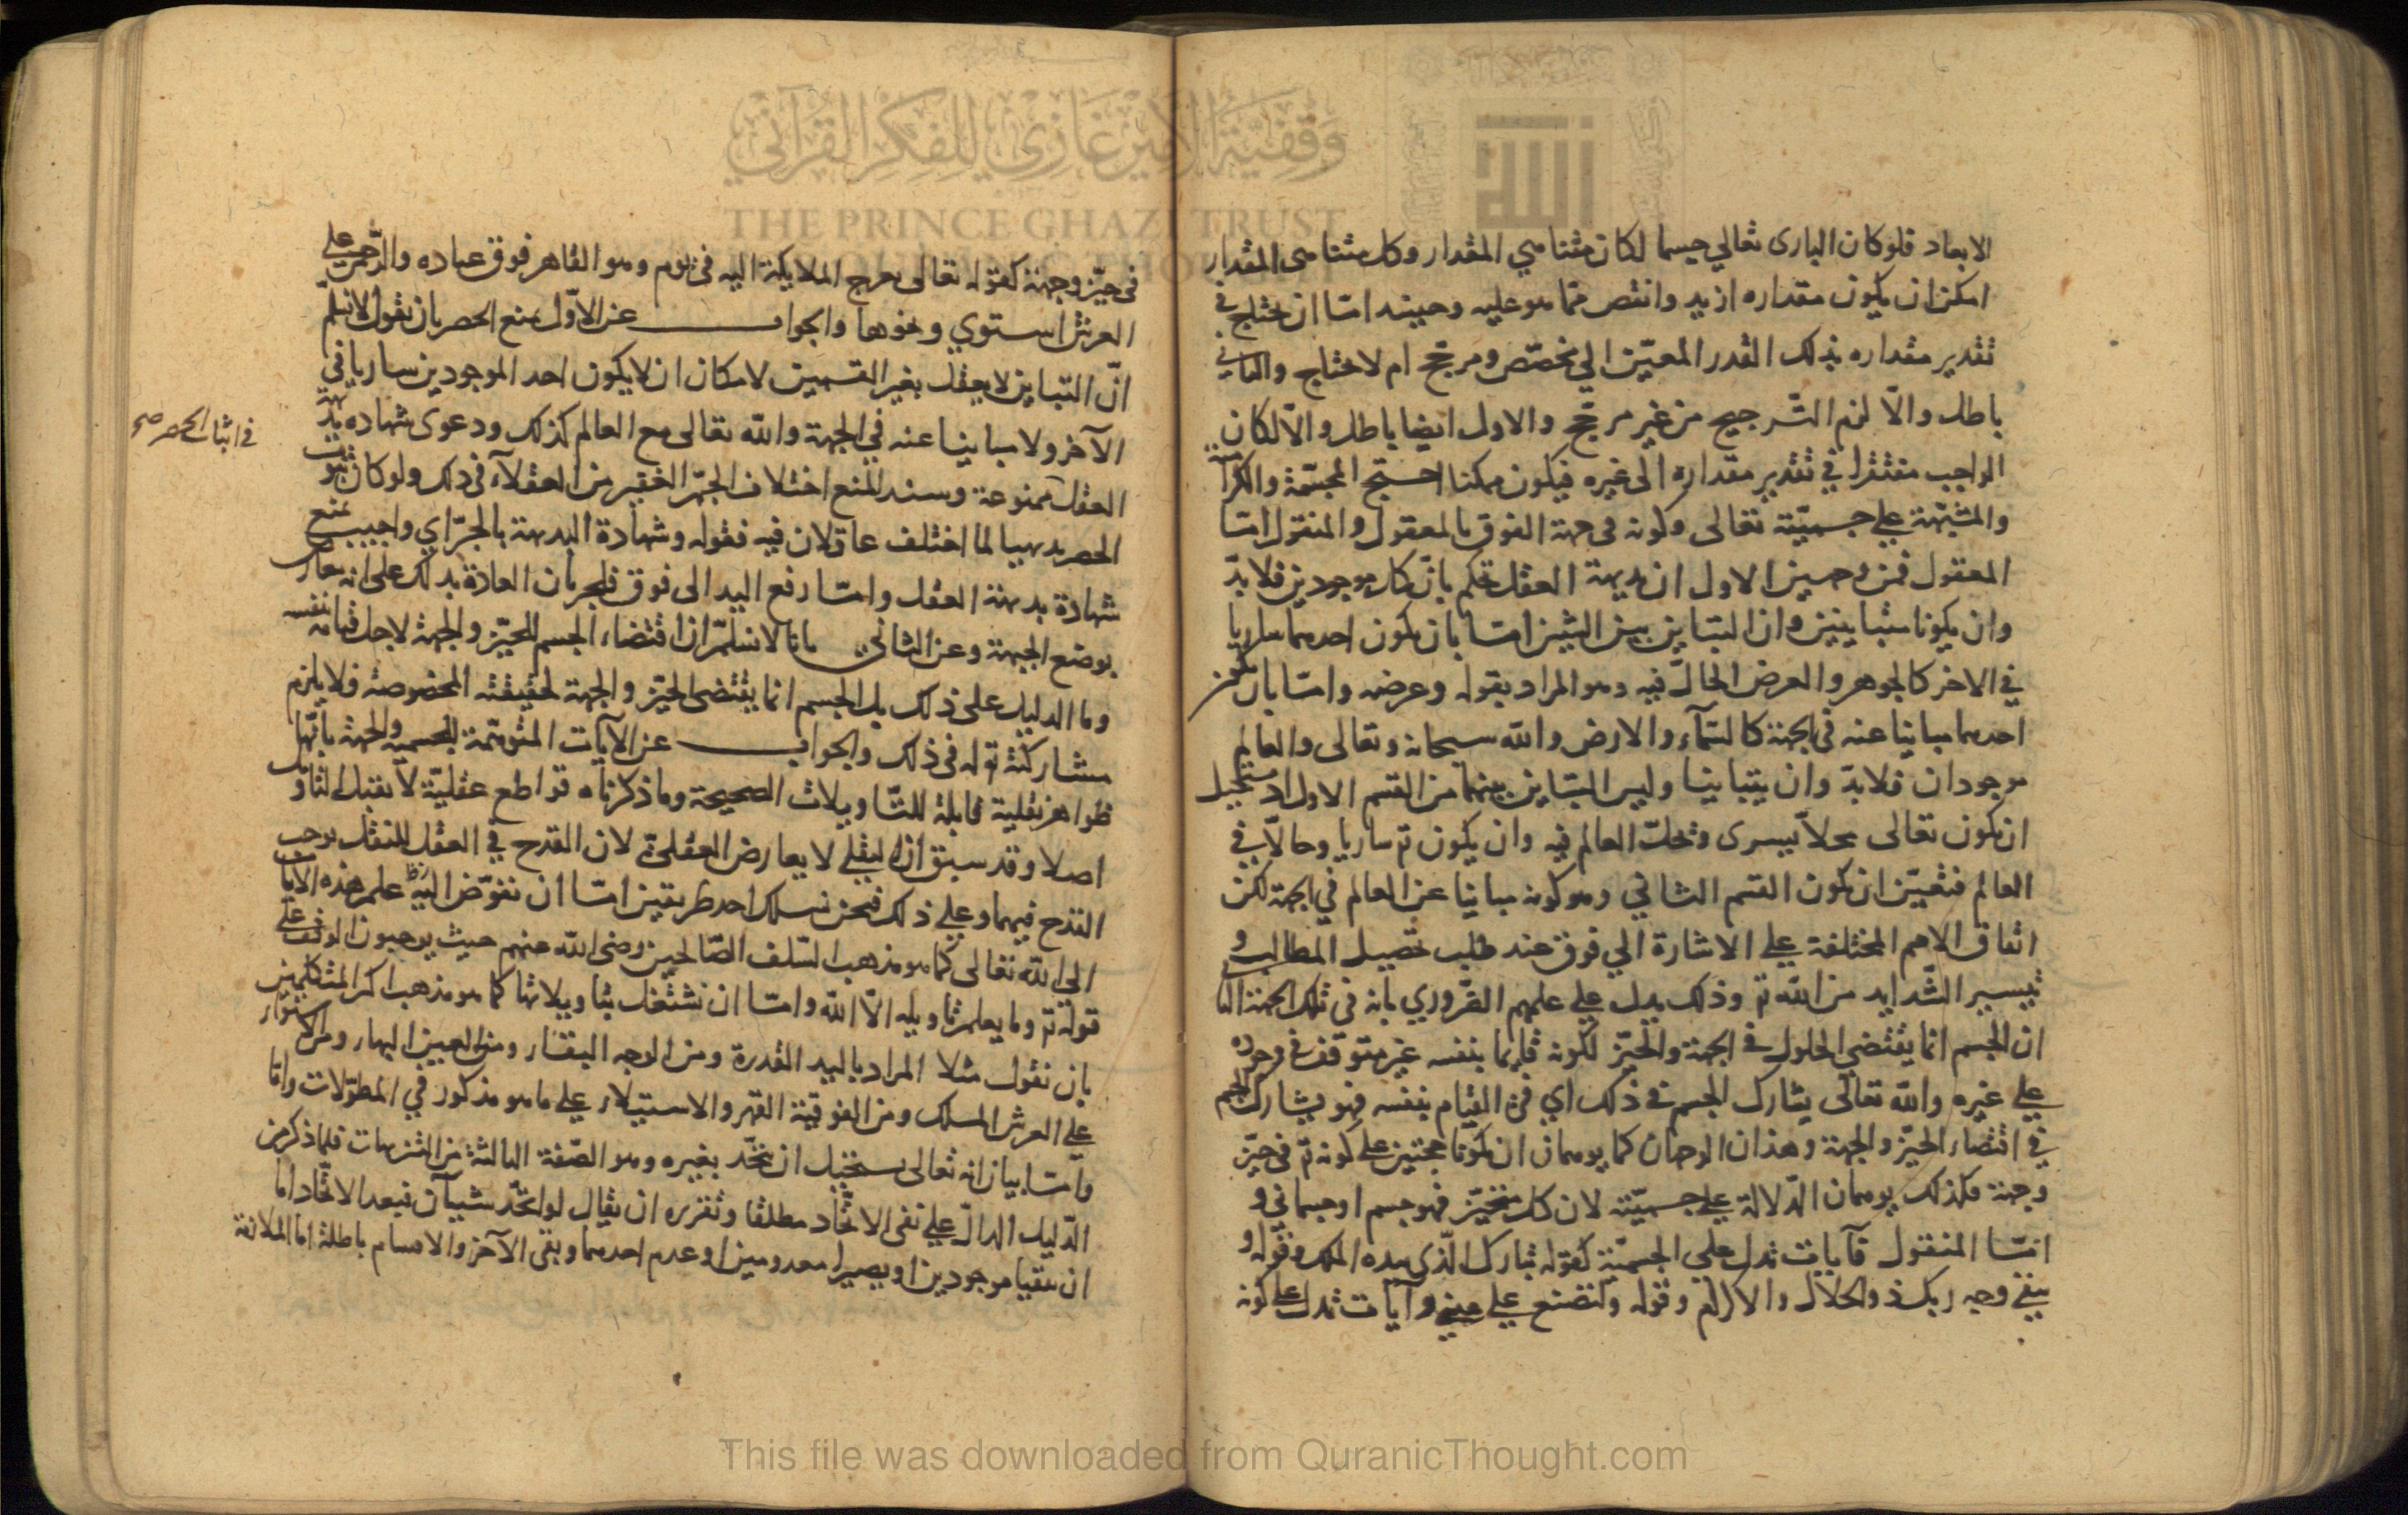 الابعاد فلو كان البارى تعالي جسما لكان متناهي المقدار وكل متناهى المقدار
امكن ان يكون مقداره ازيد وانقص مما هو عليه وحينئذ امّا ان يحتاج في
تقدير مقداره بذلك القدر المعيّن الي مخصّص ومرجّح ام لا يحتاج والثاني
باطل والّا لزم التّرجيح من غير مرجّح والاول ايضا باطل والّا لكان
الواجب مفتقرا في تقدير مقداره الى غيره فيكون ممكنا احتج المجسّمة والكرامية
والمشبّهة علي جسميّته تعالى وكونه فى جهة الفوق بالمعقول والمنقول امّا
المعقول فمن وجهين الاول ان بديهة العقل تحكم بانّ كل موجودين فلا بدّ
وان يكونا متباينين وان التباين بين الشيئين امّا بان يكون احدهما ساريا
في الاخر كالجوهر والعرض الحالّ فيه وهو المراد بقوله وعرضه وامّا بان يكون
احدهما مباينا عنه في الجهة كالسّمآء والارض والله سبحانه وتعالى والعالم
موجودان فلا بدّ وان يتباينا وليس التباين بينهما من القسم الاول اذ يستحيل
ان يكون تعالى محلّا يسرى وتحلّ العالم فيه وان يكون تع ساريا وحالّا في
العالم فتعيّن ان يكون القسم الثاني وهو كونه مباينا عن العالم في الجهة لكن
اتفاق الامم المختلفة علي الاشارة الي فوق عند طلب تحصيل المطالب و
تيسير الشّدايد من الله تع وذلك يدل علي علمهم الضّروري بانه في تلك الجهة الثا
ان الجسم انما يقتضي الحلول في الجهة والحيّز لكونه قايما بنفسه غير متوقف في وجوده
علي غيره والله تعالى يشارك الجسم في ذلك اي في القيام بنفسه فهو يشارك الجسم
في اقتضاء الحيّز والجهة وهذان الوجهان كما يوهمان ان يكونا حجتين علي كونه تع في حيّز
وجهة فكذلك يوهمان الدّلالة علي جسميّته لان كل متحيّز فهو جسم او جسماني و
امّا المنقول فآيات تدل على الجسميّة كقوله تبارك الّذى بيده الملك وقوله و
يبقي وجه ربك ذو الجلال والاكرام وقوله ولتصنع علي عيني وآيات تدل علي كونه
في حيّز وجهة كقوله تعالى تعرج الملايكة اليه فى يوم وهو القاهر فوق عباده والرّحمن علي
العرش استوي ونحوها والجواب عن الاوّل بمنع الحصر بان نقول لا نسلم
انّ التباين لا يعقل بغير القسمين لامكان ان لا يكون احد الموجودين ساريا في
الآخر ولا مباينا عنه في الجهة والله تعالى مع العالم كذلك ودعوى شهاده بديهة
العقل ممنوعة وسند المنع اختلاف الجمّ الغفير من العقلاء فى ذلك ولو كان ثبوت
في اثبات الحصر صح
الحصر بديهيا لما اختلف عاقلان فيه فقوله وشهادة البديهة بالجرّ اي واجيب بمنع
شهادة بديهة العقل وامّا رفع اليد الى فوق فلجريان العادة بذلك على انه معارض
بوضع الجبهة وعن الثاني بانا لا نسلّم ان اقتضاء الجسم للحيّز والجهة لاجل قيامه بنفسه
وما الدليل على ذلك بل الجسم انما يقتضى الحيّز والجهة لحقيقته المخصوصة فلا يلزم
مشاركته تع له فى ذلك والجواب عن الآيات المتوهّمة للجسميه والجهة بانّها
ظواهر نقلية قابلة للتّاويلات الصحيحة وما ذكرناه قواطع عقليّة لا تقبل التاويل
اصلا وقد سبق انّ النقلي لا يعارض العقلي لان القدح في العقل للنقل يوجب
القدح فيهما وعلي ذلك فنحن نسلك احد طريقين امّا ان نفوّض البتة علم هذه الآيات
الي الله تعالى كما هو مذهب السّلف الصّالحين رضى الله عنهم حيث يوجبون الوقف علي
قوله تع وما يعلم تاويله الّا الله وامّا ان نشتغل بتاويلاتها كما هو مذهب اكثر المتكلمين
بان نقول مثلا المراد باليد القدرة ومن الوجه البقاء ومن العين البصر ومن الاستواء
علي العرش الملك ومن الفوقيّة القهر والاستيلاء علي ما هو مذكور في المطوّلات واما
وامّا بيان انه تعالى يستحيل ان يتّحد بغيره وهو الصّفة الثالثة من التنزيهات فلما ذكر من
الدّليل الدالّ علي نفى الاتّحاد مطلقا وتقريره ان يقال لو اتّحد شيئان فبعد الاتّحاد اما
ان بقيا موجودين او يصيرا معدومين او عدم احدهما وبقى الآخر والاقسام باطلة اما الملازمة
وقفية الأمير غازي للفكر القرآني
THE PRINCE GHAZI TRUST
This file was downloaded from QuranicThought.com